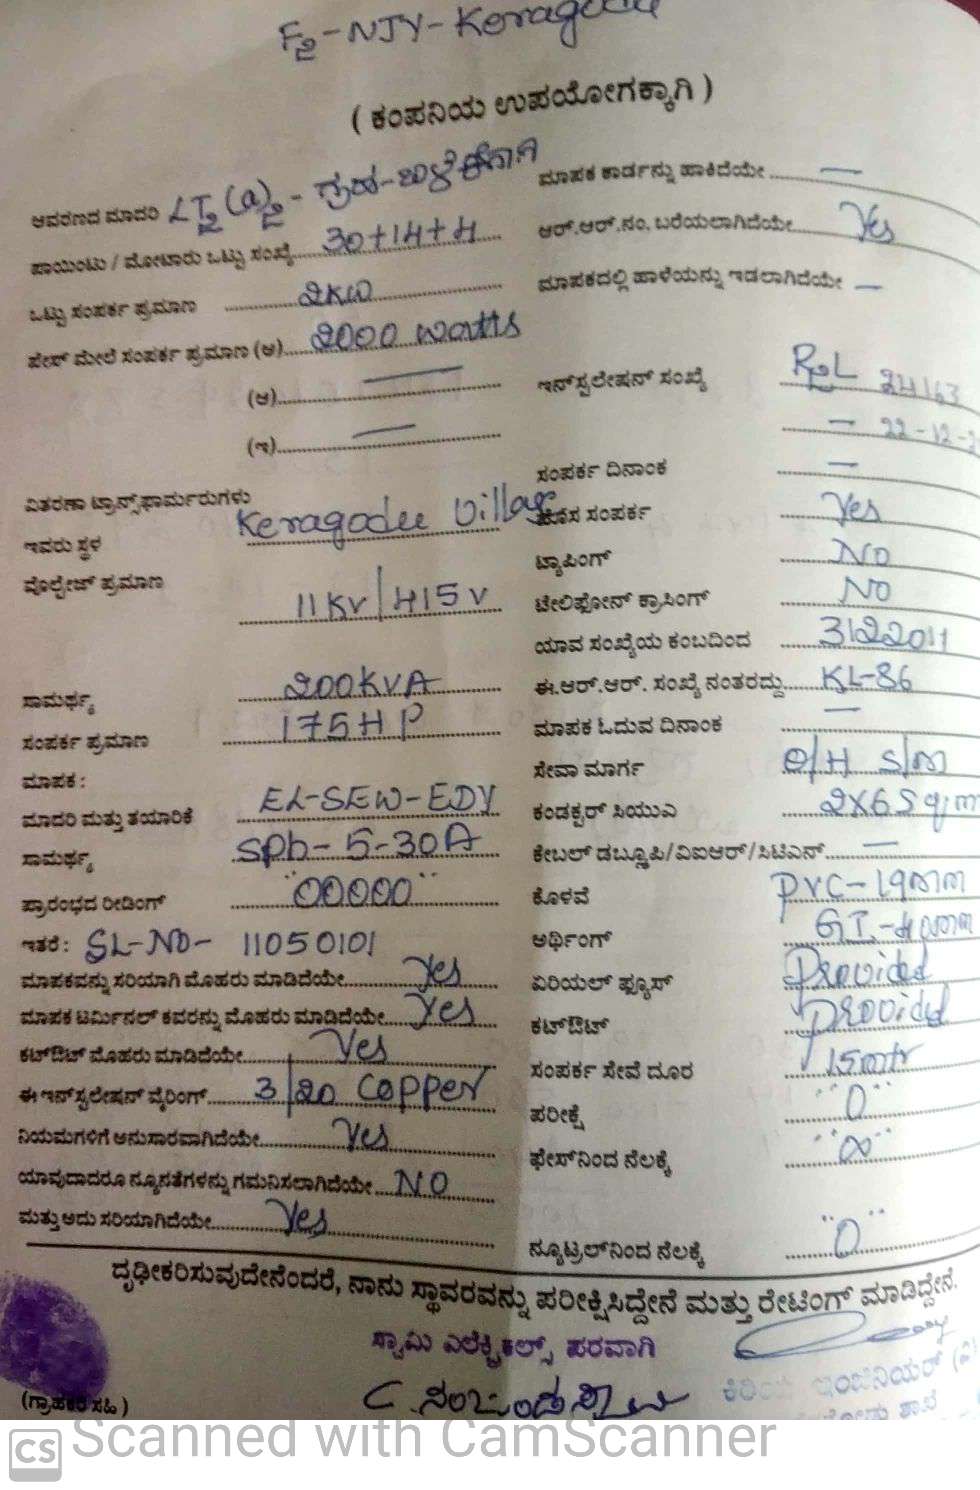 F2-NJY-Keragodu
( ಕಂಪನಿಯ ಉಪಯೋಗಕ್ಕಾಗಿ )
ಆವರಣದ ಮಾದರಿ LT2(a)2 - ಗೃಹ-ಬಳಕೆಗಾಗಿ
ಪಾಯಿಂಟು / ಮೋಟಾರು ಒಟ್ಟು ಸಂಖ್ಯೆ 30+14+4
ಒಟ್ಟು ಸಂಪರ್ಕ ಪ್ರಮಾಣ 2KW
ಫೇಸ್ ಮೇಲೆ ಸಂಪರ್ಕ ಪ್ರಮಾಣ (ಅ) 2000 watts
(ಆ) —
(ಇ) —
ವಿತರಣಾ ಟ್ರಾನ್ಸ್‌ಫಾರ್ಮರುಗಳು
ಇವರು ಸ್ಥಳ Keragodu Village
ವೊಲ್ಟೇಜ್ ಪ್ರಮಾಣ 11KV/415V
ಸಾಮರ್ಥ್ಯ 200KVA
ಸಂಪರ್ಕ ಪ್ರಮಾಣ 175HP
ಮಾಪಕ :
ಮಾದರಿ ಮತ್ತು ತಯಾರಿಕೆ EL-SEW-EDY
ಸಾಮರ್ಥ್ಯ SPh-5-30A
ಪ್ರಾರಂಭದ ರೀಡಿಂಗ್ "00000"
ಇತರೆ : SL-NO- 11050101
ಮಾಪಕವನ್ನು ಸರಿಯಾಗಿ ಮೊಹರು ಮಾಡಿದೆಯೇ Yes
ಮಾಪಕ ಟರ್ಮಿನಲ್ ಕವರನ್ನು ಮೊಹರು ಮಾಡಿದೆಯೇ Yes
ಕಟ್‌ಔಟ್ ಮೊಹರು ಮಾಡಿದೆಯೇ Yes
ಈ ಇನ್‌ಸ್ಟಲೇಷನ್ ವೈರಿಂಗ್ 3/20 Copper
ನಿಯಮಗಳಿಗೆ ಅನುಸಾರವಾಗಿದೆಯೇ Yes
ಯಾವುದಾದರೂ ನ್ಯೂನತೆಗಳನ್ನು ಗಮನಿಸಲಾಗಿದೆಯೇ NO
ಮತ್ತು ಅದು ಸರಿಯಾಗಿದೆಯೇ Yes
ಮಾಪಕ ಕಾರ್ಡನ್ನು ಹಾಕಿದೆಯೇ —
ಆರ್.ಆರ್.ನಂ. ಬರೆಯಲಾಗಿದೆಯೇ Yes
ಮಾಪಕದಲ್ಲಿ ಹಾಳೆಯನ್ನು ಇಡಲಾಗಿದೆಯೇ —
ಇನ್‌ಸ್ಟಲೇಷನ್ ಸಂಖ್ಯೆ R2L 24163
— 22-12-2
ಸಂಪರ್ಕ ದಿನಾಂಕ —
ಹೊಸ ಸಂಪರ್ಕ Yes
ಟ್ಯಾಪಿಂಗ್ NO
ಟೇಲಿಫೋನ್ ಕ್ರಾಸಿಂಗ್ NO
ಯಾವ ಸಂಖ್ಯೆಯ ಕಂಬದಿಂದ 3122011
ಈ.ಆರ್.ಆರ್. ಸಂಖ್ಯೆ ನಂತರದ್ದು KL-86
ಮಾಪಕ ಓದುವ ದಿನಾಂಕ —
ಸೇವಾ ಮಾರ್ಗ O/H S/M
ಕಂಡಕ್ಟರ್ ಸಿಯುಎ 2X6Sqm
ಕೇಬಲ್ ಡಬ್ಲ್ಯೂಪಿ/ವಿಐಆರ್/ಸಿಟಿಎಸ್ —
ಕೊಳವೆ PVC-19mm
GI-40mm
ಅರ್ಥಿಂಗ್ Provided
ಏರಿಯಲ್ ಫ್ಯೂಸ್ Provided
ಕಟ್‌ಔಟ್
ಸಂಪರ್ಕ ಸೇವೆ ದೂರ 15mtr
ಪರೀಕ್ಷೆ "0"
ಫೇಸ್‌ನಿಂದ ನೆಲಕ್ಕೆ "∞"
ನ್ಯೂಟ್ರಲ್‌ನಿಂದ ನೆಲಕ್ಕೆ "0"
ದೃಢೀಕರಿಸುವುದೇನೆಂದರೆ, ನಾನು ಸ್ಥಾವರವನ್ನು ಪರೀಕ್ಷಿಸಿದ್ದೇನೆ ಮತ್ತು ರೇಟಿಂಗ್ ಮಾಡಿದ್ದೇನೆ.
ಸ್ವಾಮಿ ಎಲೆಕ್ಟ್ರಿಕಲ್ಸ್ ಪರವಾಗಿ
ಕಿರಿಯ ಇಂಜಿನಿಯರ್ (ವಿ)
(ಗ್ರಾಹಕರ ಸಹಿ)
CS Scanned with CamScanner